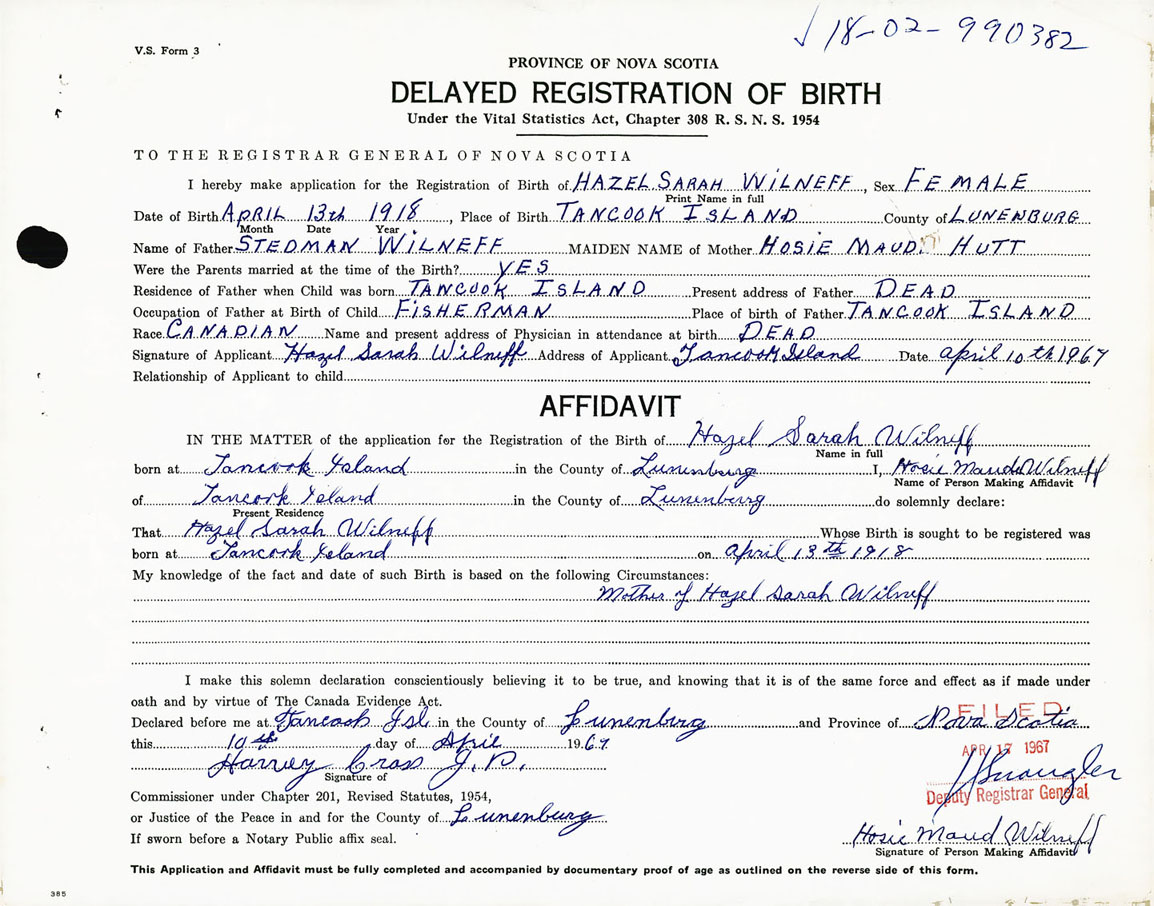 18-02-990382
V.S. Form 3
PROVINCE OF NOVA SCOTIA
DELAYED REGISTRATION OF BIRTH
Under the Vital Statistics Act, Chapter 308 R. S. N. S. 1954
TO THE REGISTRAR GENERAL OF NOVA SCOTIA
I hereby make application for the Registration of Birth of HAZEL SARAH WILNEFF, Sex FEMALE
Print Name in full
Date of Birth APRIL 13th 1918, Place of Birth TANCOOK ISLAND County of LUNENBURG
Month Date Year
Name of Father STEDMAN WILNEFF MAIDEN NAME of Mother HOSIE MAUD HUTT
Were the Parents married at the time of the Birth? YES
Residence of Father when Child was born TANCOOK ISLAND Present address of Father DEAD
Occupation of Father at Birth of Child FISHERMAN Place of birth of Father TANCOOK ISLAND
Race CANADIAN Name and present address of Physician in attendance at birth DEAD
Signature of Applicant Hazel Sarah Wilneff Address of Applicant Tancook Island Date April 10th 1967
Relationship of Applicant to child
AFFIDAVIT
IN THE MATTER of the application for the Registration of the Birth of Hazel Sarah Wilneff
Name in full
born at Tancook Island in the County of Lunenburg I, Hosie Maude Wilneff
Name of Person Making Affidavit
of Tancook Island in the County of Lunenburg do solemnly declare:
Present Residence
That Hazel Sarah Wilneff Whose Birth is sought to be registered was
born at Tancook Island on April 13th 1918
My knowledge of the fact and date of such Birth is based on the following Circumstances:
Mother of Hazel Sarah Wilneff
I make this solemn declaration conscientiously believing it to be true, and knowing that it is of the same force and effect as if made under
oath and by virtue of The Canada Evidence Act.
Declared before me at Tancook Isl. in the County of Lunenberg and Province of Nova Scotia
FILED
this 10th day of April 1967
APR 17 1967
Harvey Cross J.P.
Signature of
Deputy Registrar General
Commissioner under Chapter 201, Revised Statutes, 1954,
or Justice of the Peace in and for the County of Lunenburg
If sworn before a Notary Public affix seal.
Hosie Maud Wilneff
Signature of Person Making Affidavit
This Application and Affidavit must be fully completed and accompanied by documentary proof of age as outlined on the reverse side of this form.
385